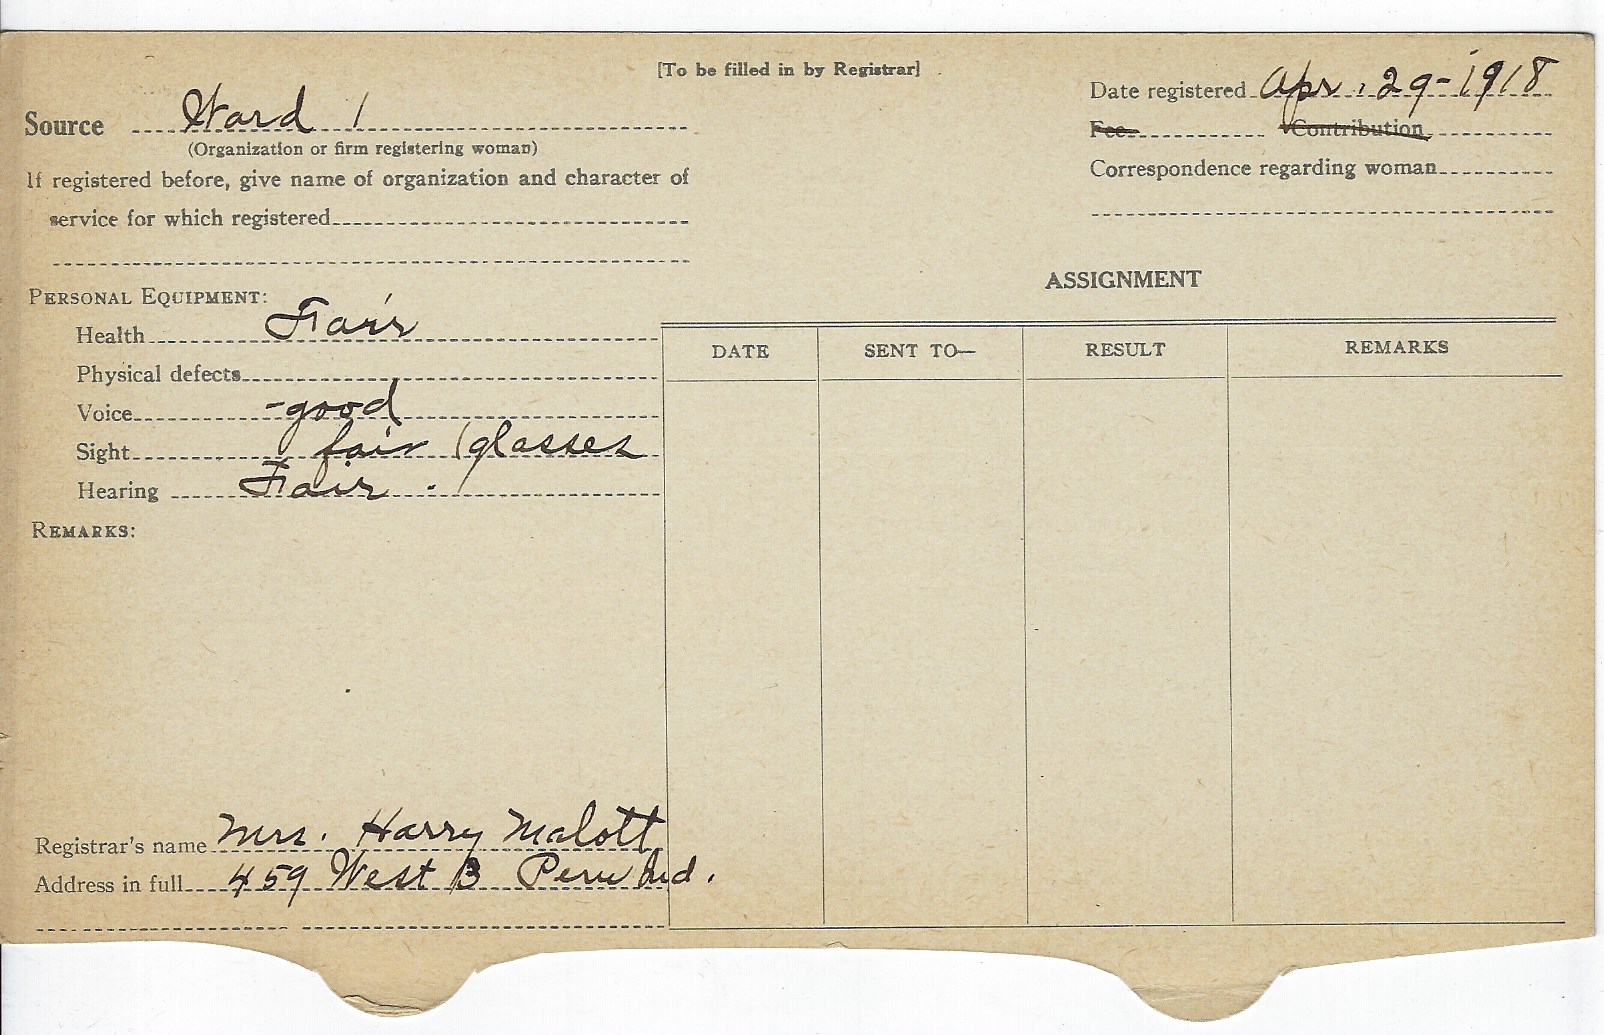 [To be filled in by Registrar]
Source Ward 1
(Organization or firm registering woman)
If registered before, give name of organization and character of
service for which registered
Date registered Apr. 29-1918
Fee Contribution
Correspondence regarding woman
PERSONAL EQUIPMENT:
Health Fair
Physical defects
Voice -good
Sight fair (glasses
Hearing Fair.
REMARKS:
ASSIGNMENT
DATE SENT TO— RESULT REMARKS
Registrar's name Mrs. Harry Malott
Address in full 459 West B Peru Ind.